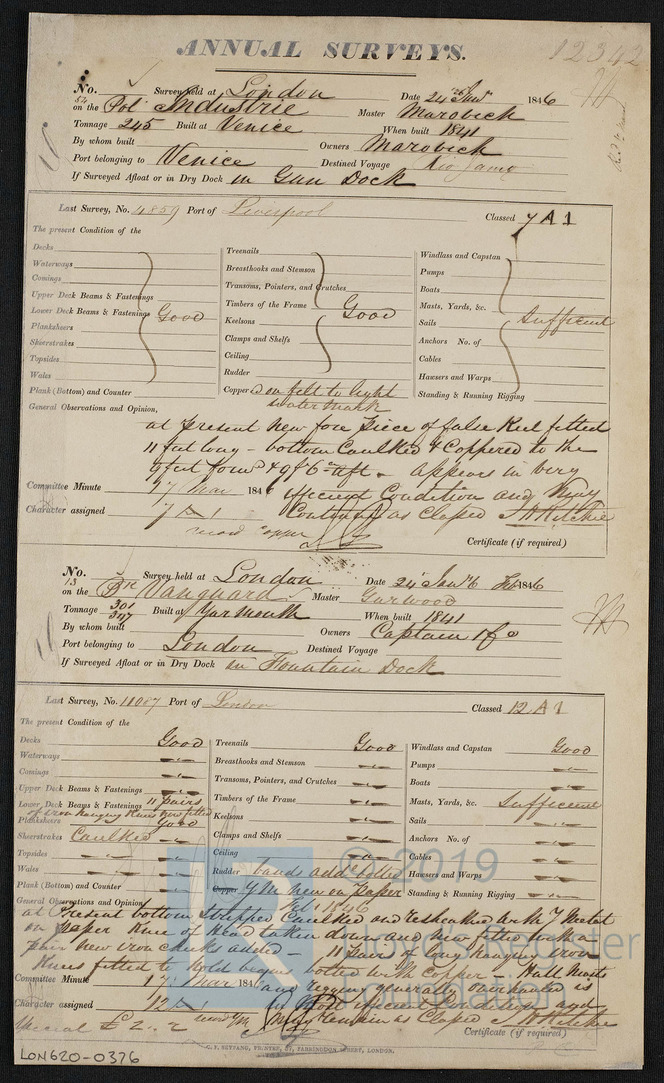 ANNUAL SURVEYS.
12342
No. 54 Survey held at London Date 24 Jany 1846
on the Pol Industrie Master Marovich
Tonnage 245 Built at Venice When built 1841
By whom built Owners Marovich
Port belonging to Venice Destined Voyage
If Surveyed Afloat or in Dry Dock in Gun Dock
Last Survey, No. 4859 Port of Liverpool Classed 7 A 1
The present Condition of the
Decks
Waterways
Comings
Upper Deck Beams & Fastenings
Lower Deck Beams & Fastenings Good
Planksheers
Sheerstrakes
Topsides
Wales
Plank (Bottom) and Counter
Treenails
Breasthooks and Stemson
Transoms, Pointers, and Crutches
Timbers of the Frame Good
Keelsons
Clamps and Shelfs
Ceiling
Rudder
Copper'd on felt to light
water mark
Windlass and Capstan
Pumps
Boats
Masts, Yards, &c.
Sails Sufficient
Anchors No. of
Cables
Hawsers and Warps
Standing & Running Rigging
General Observations and Opinion,
at present new fore piece of false Keel fitted
11 feet long - bottom Caulked & Coppered to the
9 feet forwd & 9f 6 in aft - appears in very
Committee Minute 17 Mar 1846 efficient Condition and may
Character assigned 7 A 1 Continue as Classed
Certificate (if required)
No. 13 Survey held at London Date 24 Jany 1846
on the Bk Vanguard Master Garwood
Tonnage 301
347 Built at Yarmouth When built 1841
By whom built Owners Captain & Co
Port belonging to London Destined Voyage
If Surveyed Afloat or in Dry Dock in Fountain Dock
Last Survey, No. 11087 Port of London Classed 12 A 1
The present Condition of the
Decks Good
Waterways
Comings
Upper Deck Beams & Fastenings
Lower Deck Beams & Fastenings 11 pairs
of iron hanging Knees now fitted
Planksheers Good
Sheerstrakes Caulked
Topsides
Wales
Plank (Bottom) and Counter
Treenails Good
Breasthooks and Stemson
Transoms, Pointers, and Crutches
Timbers of the Frame
Keelsons
Clamps and Shelfs
Ceiling
Rudder bands added
Copper YM new on Paper
Feby 1846
Windlass and Capstan Good
Pumps
Boats
Masts, Yards, &c. Sufficient
Sails
Anchors No. of
Cables
Hawsers and Warps
Standing & Running Rigging
General Observations and Opinion,
at Present bottom stripped Caulked and resheathed with Y Metal
on paper Knee of Head taken down and new fitted with a
pair new iron cheeks added - 11 Pairs of long hanging iron
Knees fitted to hold beams bolted with copper -
Committee Minute 17 Mar 1846 and rigging generally overhauled is
Character assigned 12 A 1 in most efficient Condition and
may remain as Classed
Certificate (if required)
Special £ 2 . 2
LON620-0376
© 2019
Lloyd's Register
Foundation